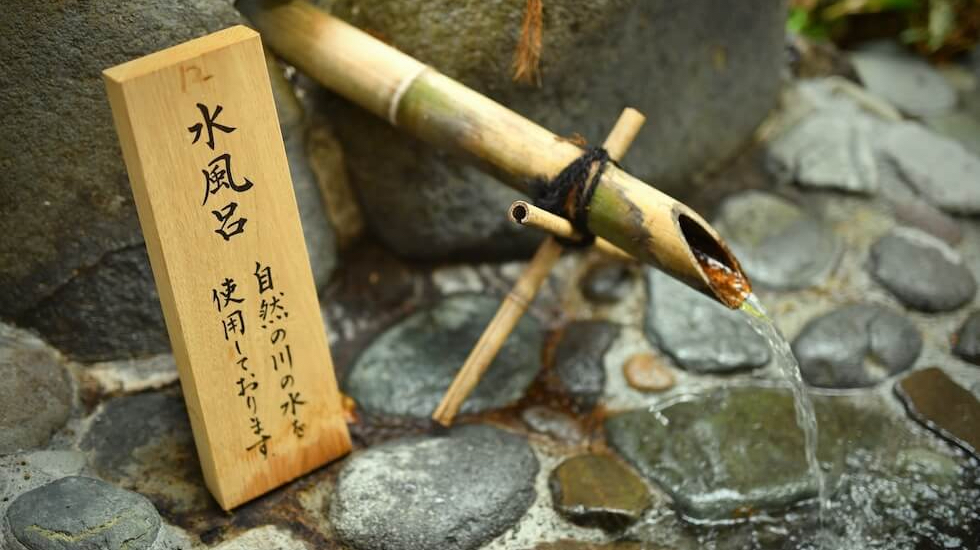 水風呂
自然の川の水を
使用しております。